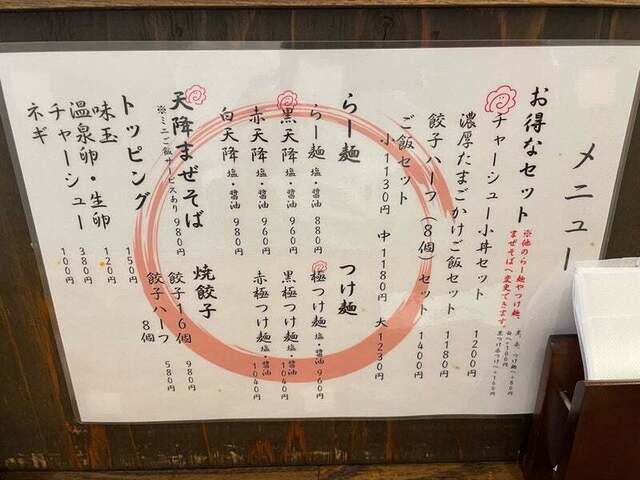 メニュー
お得なセット
※他のらー麺やつけ麺、
まぜそばへ変更できます。
チャーシュー小丼セット 1200円
濃厚たまごかけご飯セット 1180円
餃子ハーフ(8個)セット 1400円
ご飯セット
小1130円 中1180円 大1230円
らー麺
らー麺 塩・醤油 880円
黒天降 塩・醤油 960円
赤天降 塩・醤油 960円
白天降 塩・醤油 980円
つけ麺
極つけ麺 塩・醤油 960円
黒極つけ麺 塩・醤油 1040円
赤極つけ麺 塩・醤油 1040円
天降まぜそば 980円
※ミニご飯サービスあり
焼餃子
餃子16個 980円
餃子ハーフ 8個 580円
トッピング
味玉 150円
温泉卵・生卵 120円
チャーシュー 380円
ネギ 100円